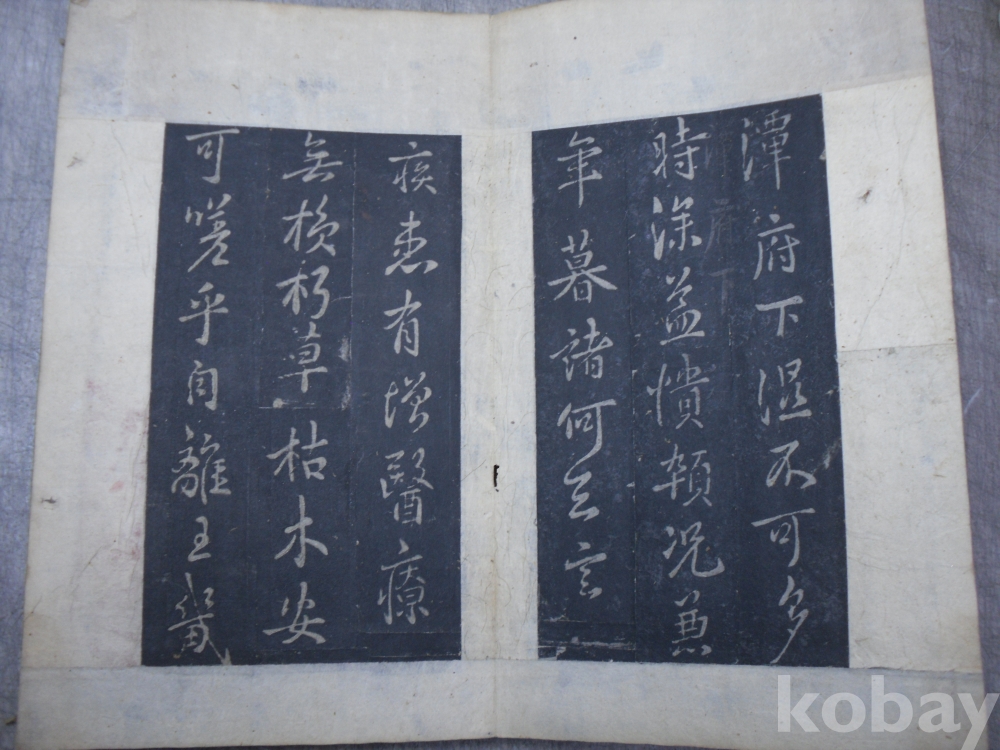 潭府下濕不可多
時深益憒頓況兼
年暮諸何足言
疾患有增醫療
無損朽草枯木安
可嗟乎自離王畿
kobay